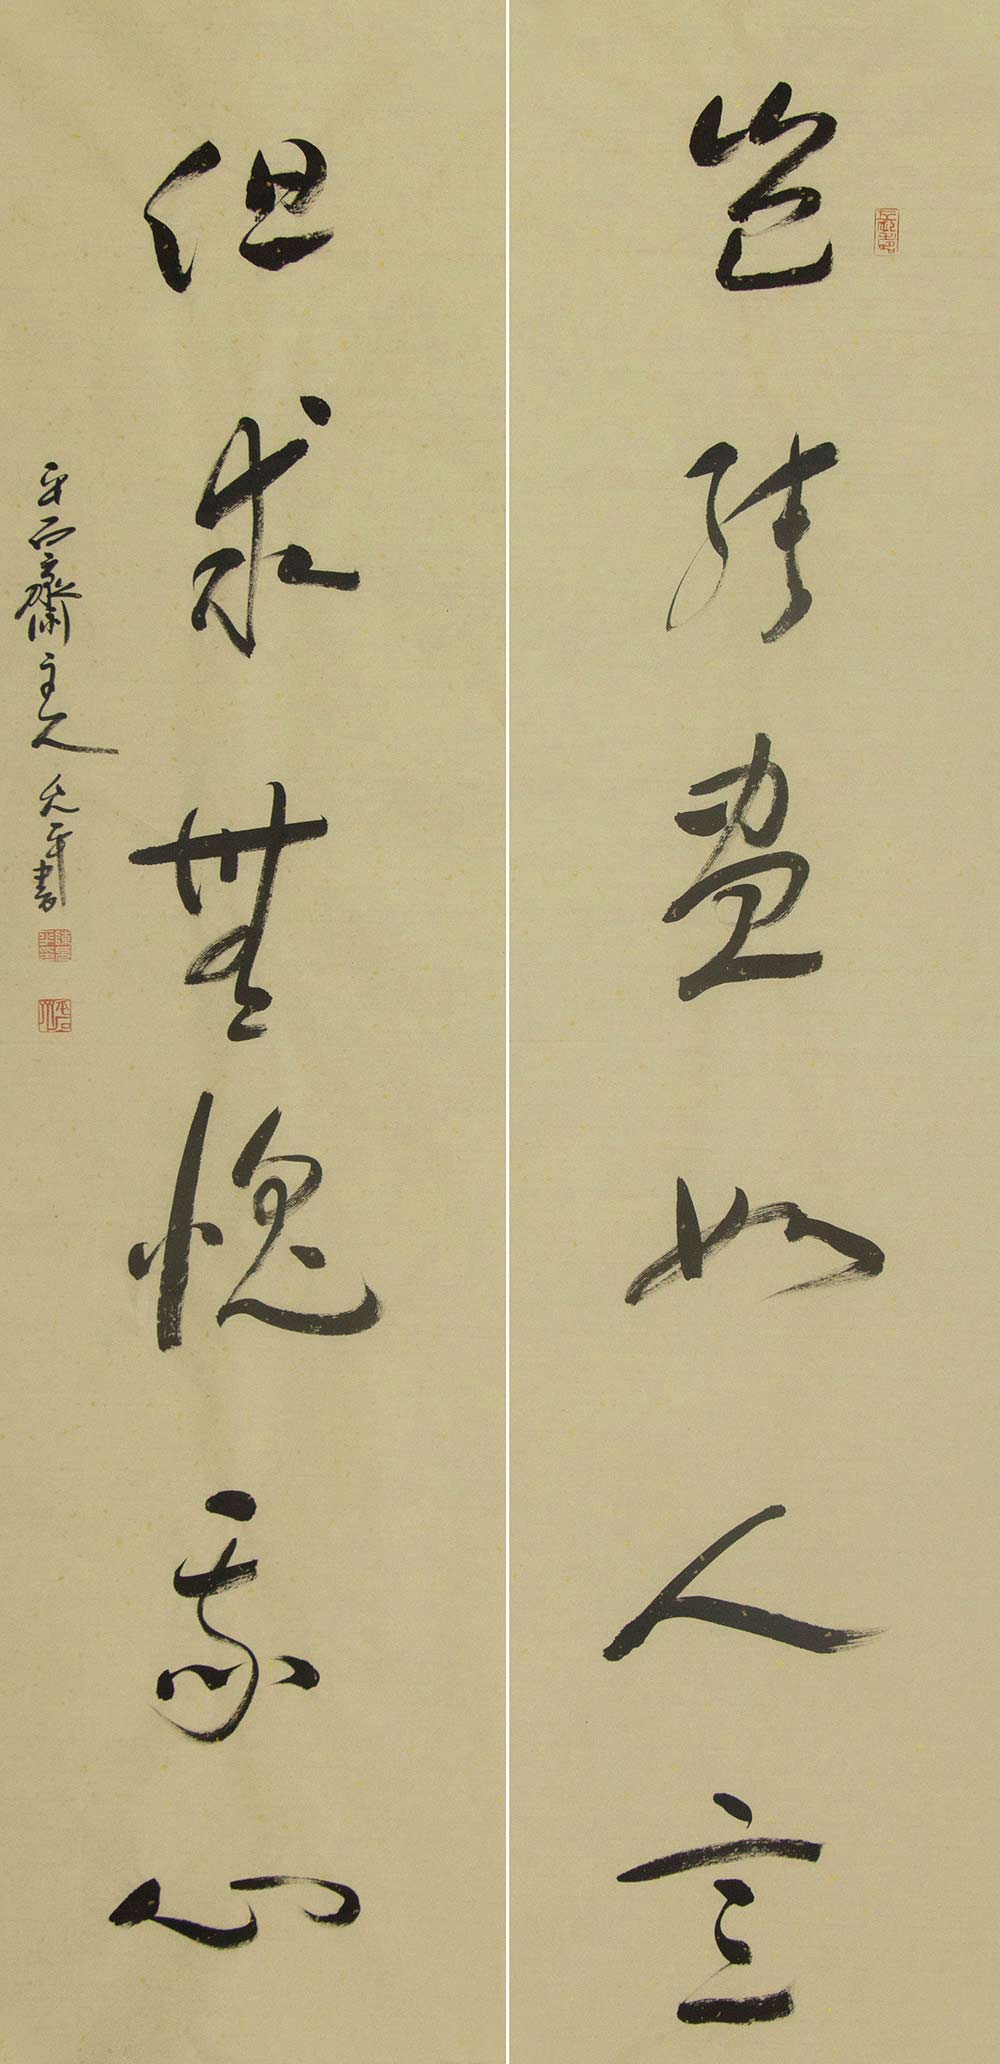 岂能尽如人意
但求無愧我心
平石齋主人久平書